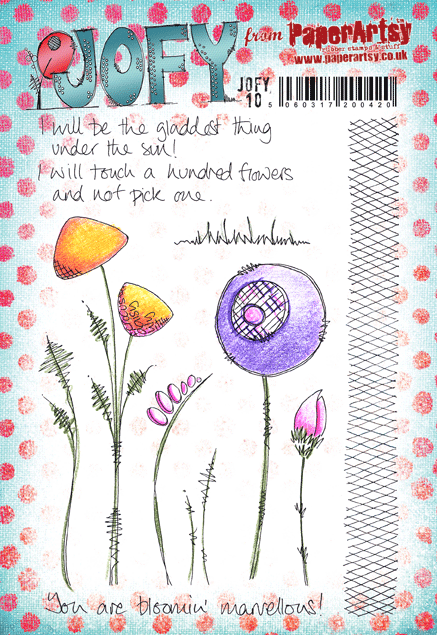 JOFY from PaperArtsy
rubber stamps & stuff
www.paperartsy.co.uk
JOFY
10
5 060317 200420
I will be the gladdest thing
under the sun!
I will touch a hundred flowers
and not pick one.
You are bloomin' marvellous!